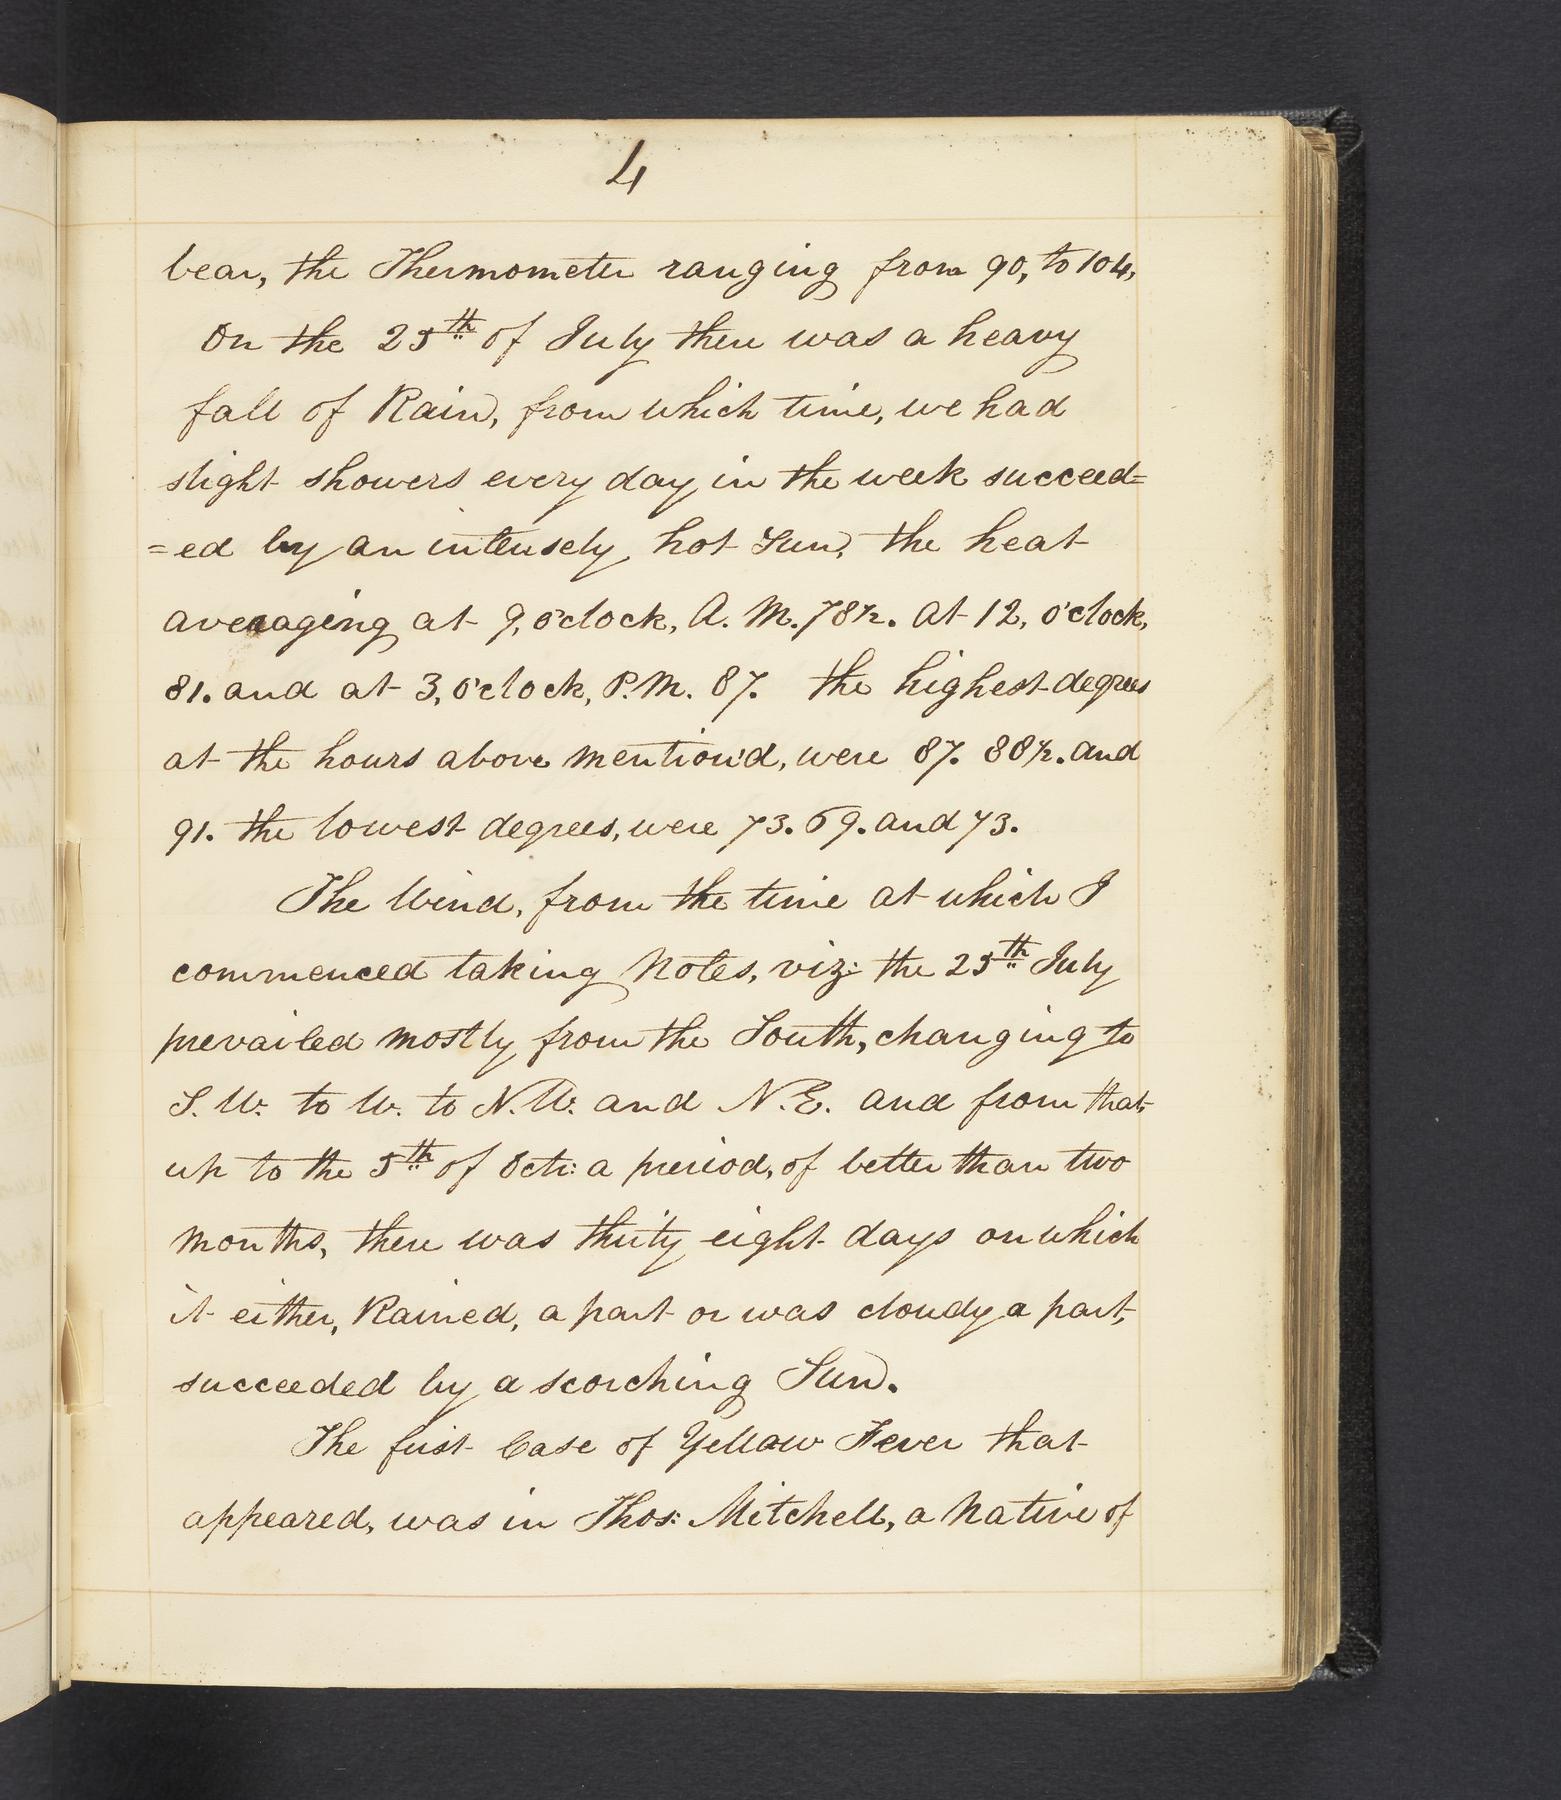 4
bear, the Thermometer ranging from 90, to 104,
On the 25th of July there was a heavy
fall of Rain, from which time, we had
slight showers every day in the week succeed=
=ed by an intensely hot Sun, the heat
averaging at 9, o'clock, A. M. 78½. At 12, o'clock,
81. and at 3, o'clock, P. M. 87. the highest degrees
at the hours above mention'd, were 87. 88½. and
91. the lowest degrees, were 73. 69. and 73.
The Wind, from the time at which I
commenced taking Notes, viz: the 25th July
prevailed mostly from the South, changing to
S. W. to W. to N. W. and N. E. and from that
up to the 5th of Octr: a period, of better than two
months, there was thirty eight days on which
it either, Rained, a part or was cloudy a part,
succeeded by a scorching Sun.
The first Case of Yellow Fever that
appeared, was in Thos: Mitchell, a Native of